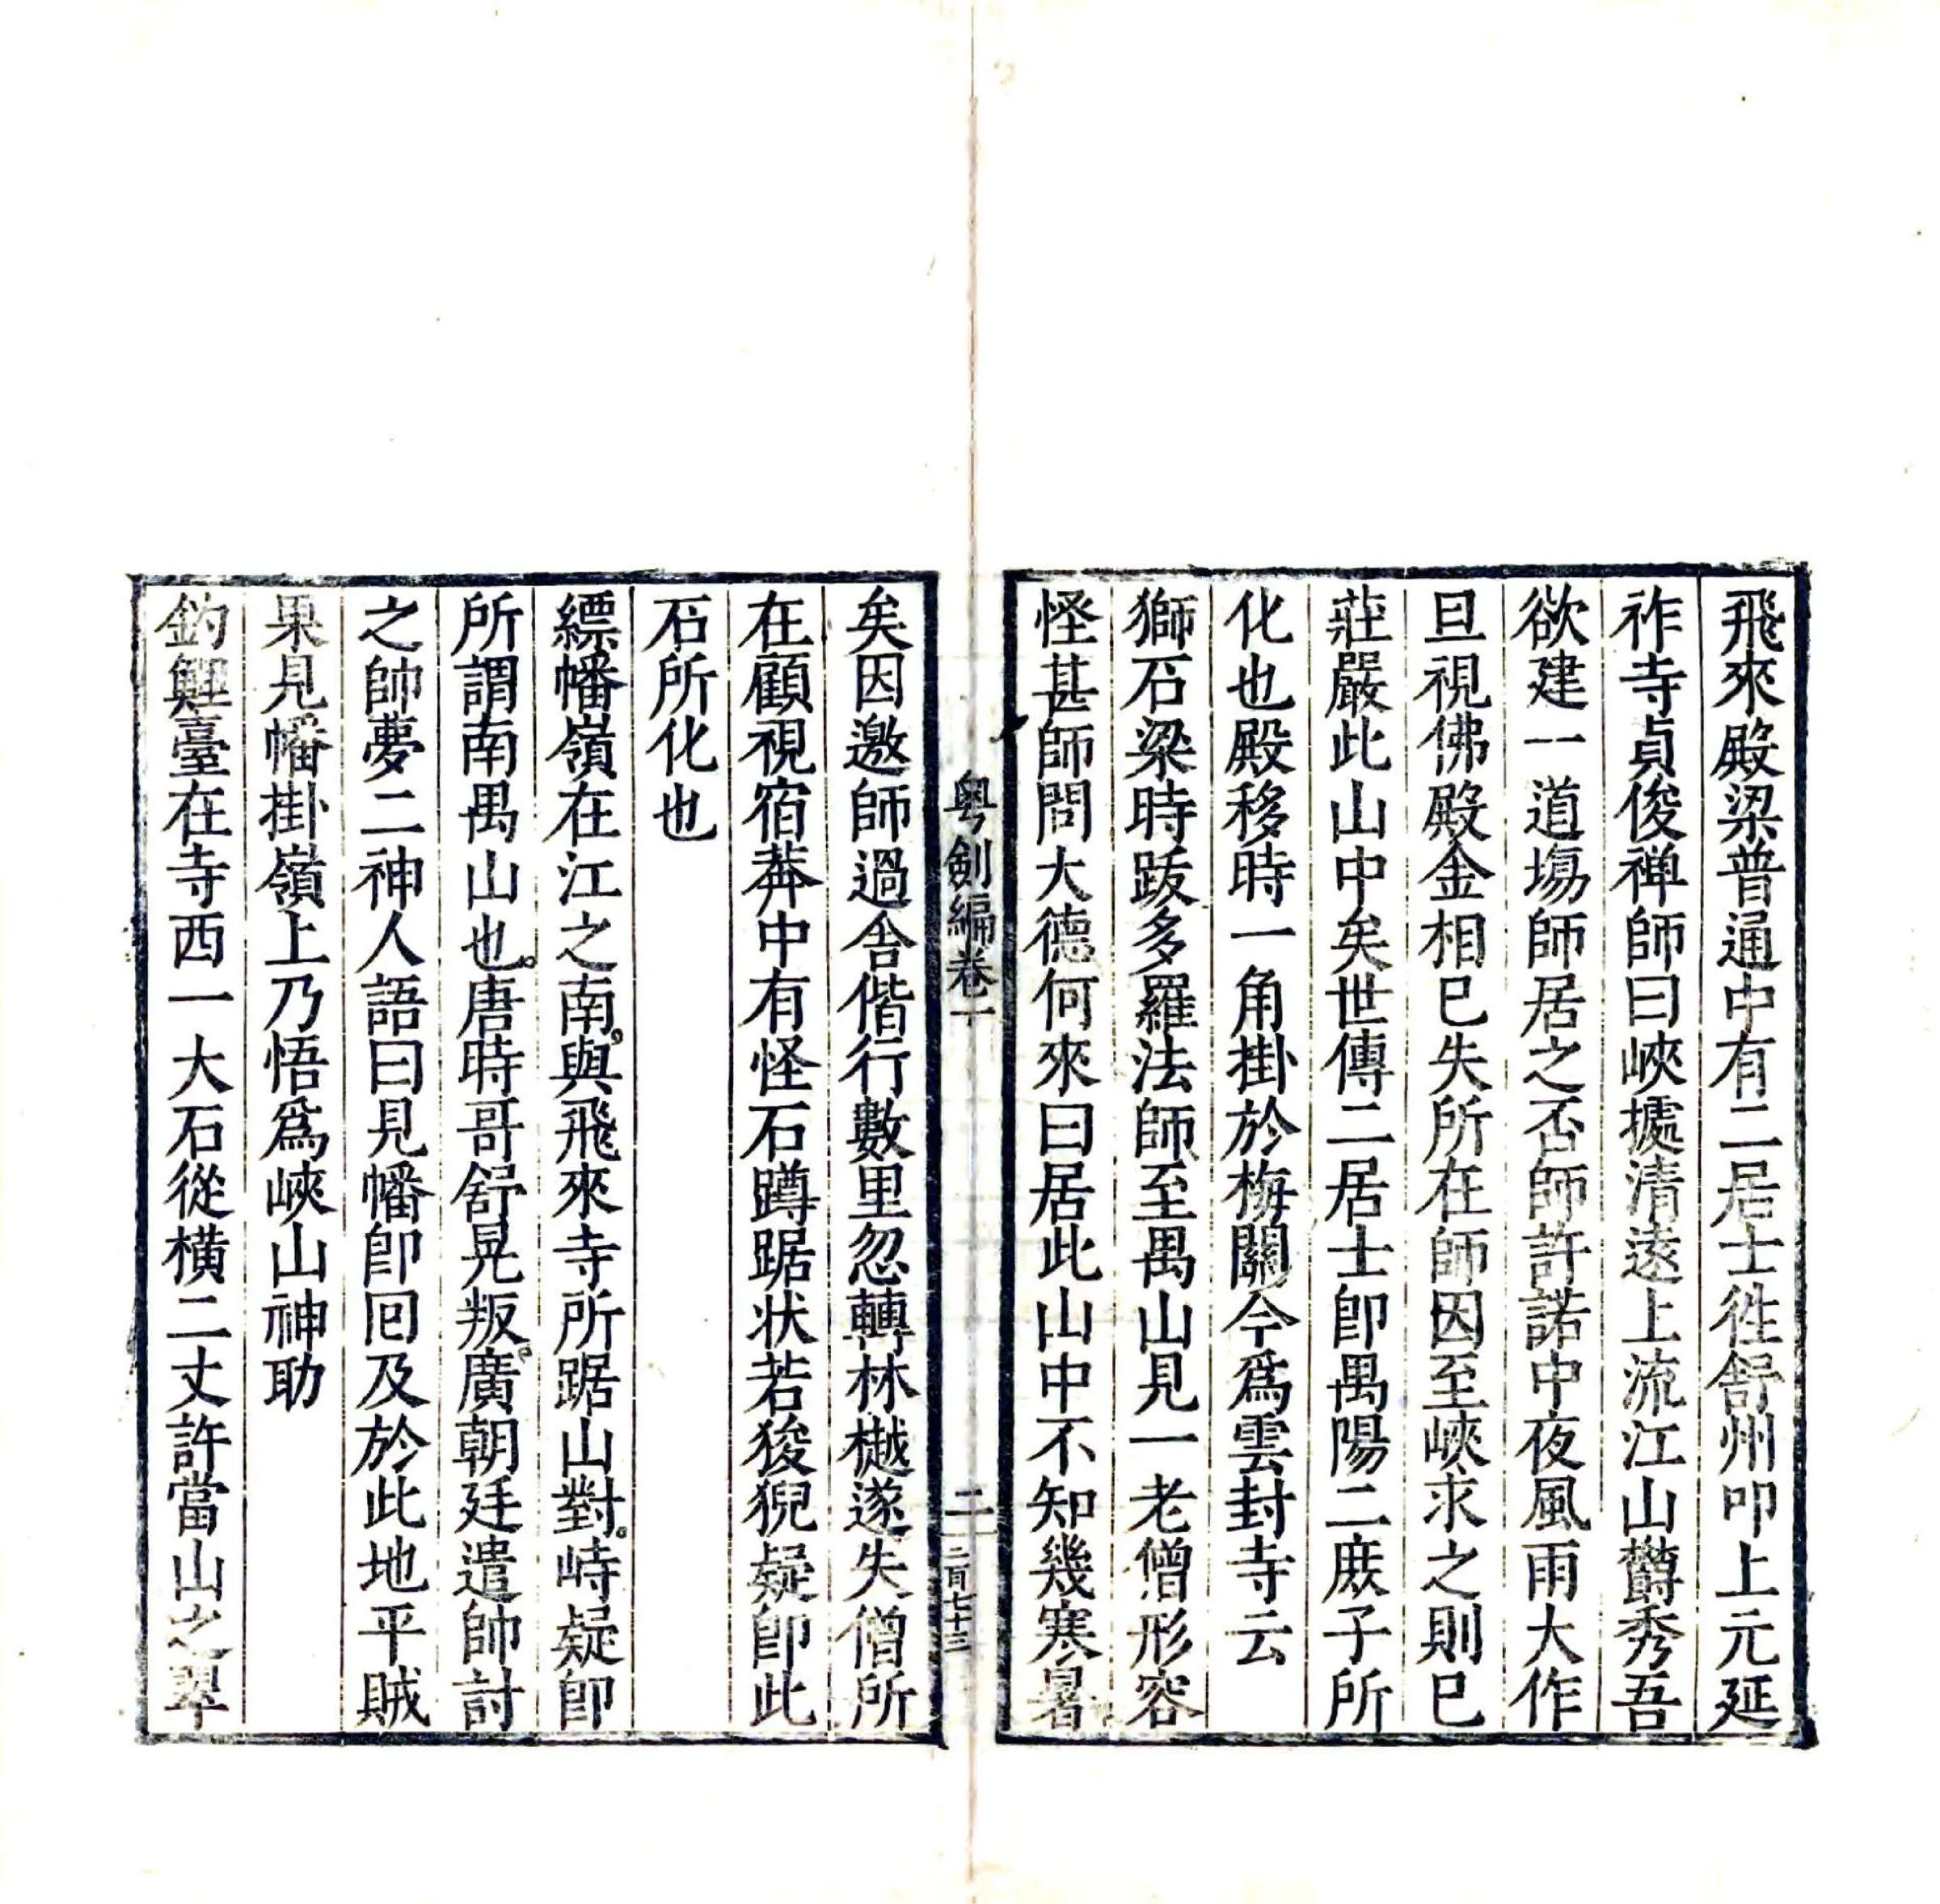 飛來殿梁普通中有二居士徃舒州叩上元延
祚寺貞俊禅師曰峽㨿清遠上流江山欝秀吾
欲建一道塲師居之否師許諾中夜風雨大作
旦視佛殿金相已失所在師因至峽求之則已
莊嚴此山中矣世傳二居士卽禺陽二庻子所
化也殿移時一角掛於梅關今爲雲封寺云
獅石梁時跋多羅法師至禺山見一老僧形容
怪甚師問大德何來曰居此山中不知幾寒暑
粤劍編卷十
二
二百七十三
矣因邀師過舍偕行數里忽轉林樾遂失僧所
在顧視宿莽中有怪石蹲踞状若狻猊疑卽此
石所化也
縹幡嶺在江之南。與飛來寺所踞山對。峙疑卽
所謂南禺山也。唐時哥舒晃叛。廣朝廷遣帥討
之帥夢二神人語曰見幡卽回及於此地平賊
果見幡掛嶺上乃悟爲峽山神助
釣鯉臺在寺西一大石從橫二丈許當山之翠